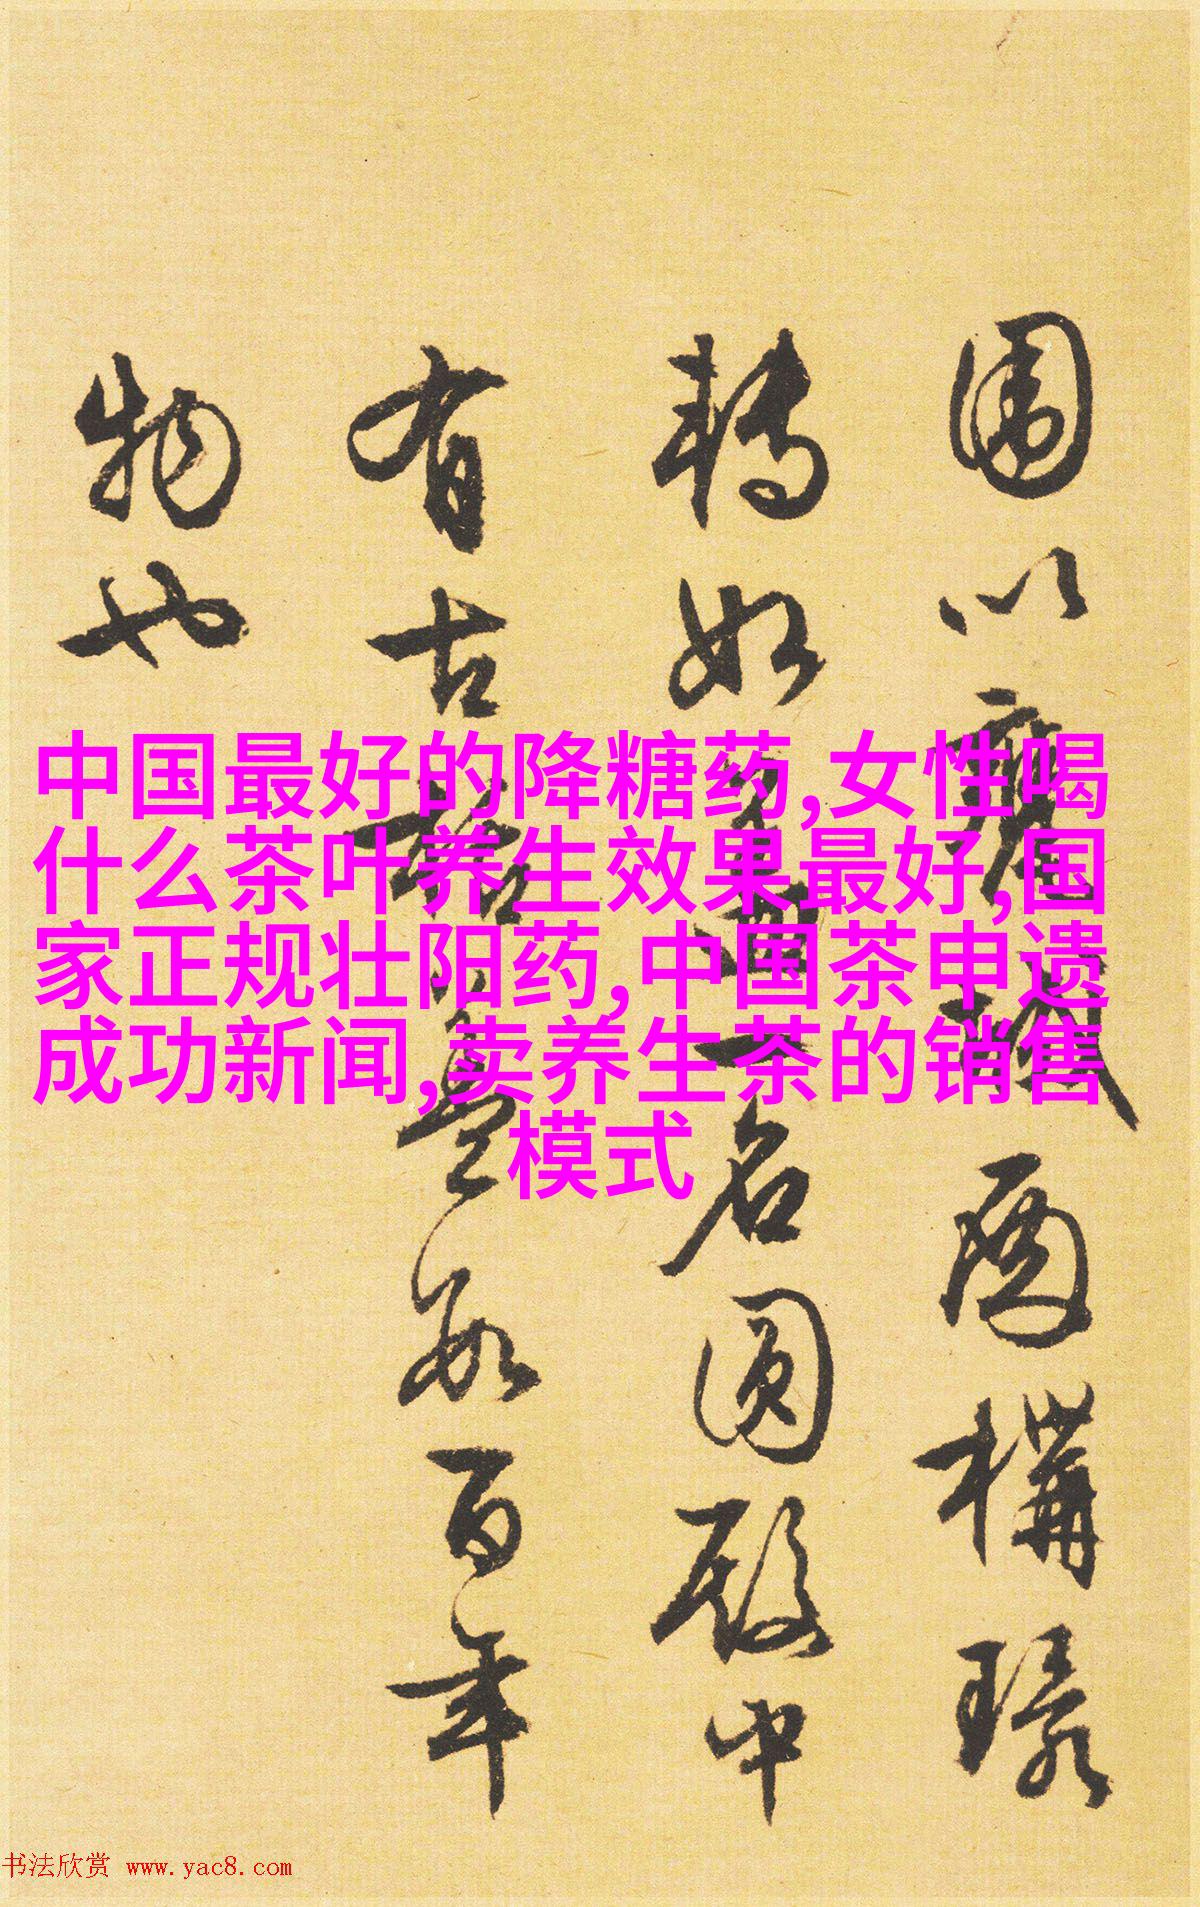 围以廊
两构环
转如
名圆殿中
有古
百年
物也
中国最好的降糖药,女性喝
什么茶叶养生效果最好,国
家正规壮阳药,中国茶申遗
成功新闻,卖养生茶的销售
模式
书法欣赏 www.yac8.com